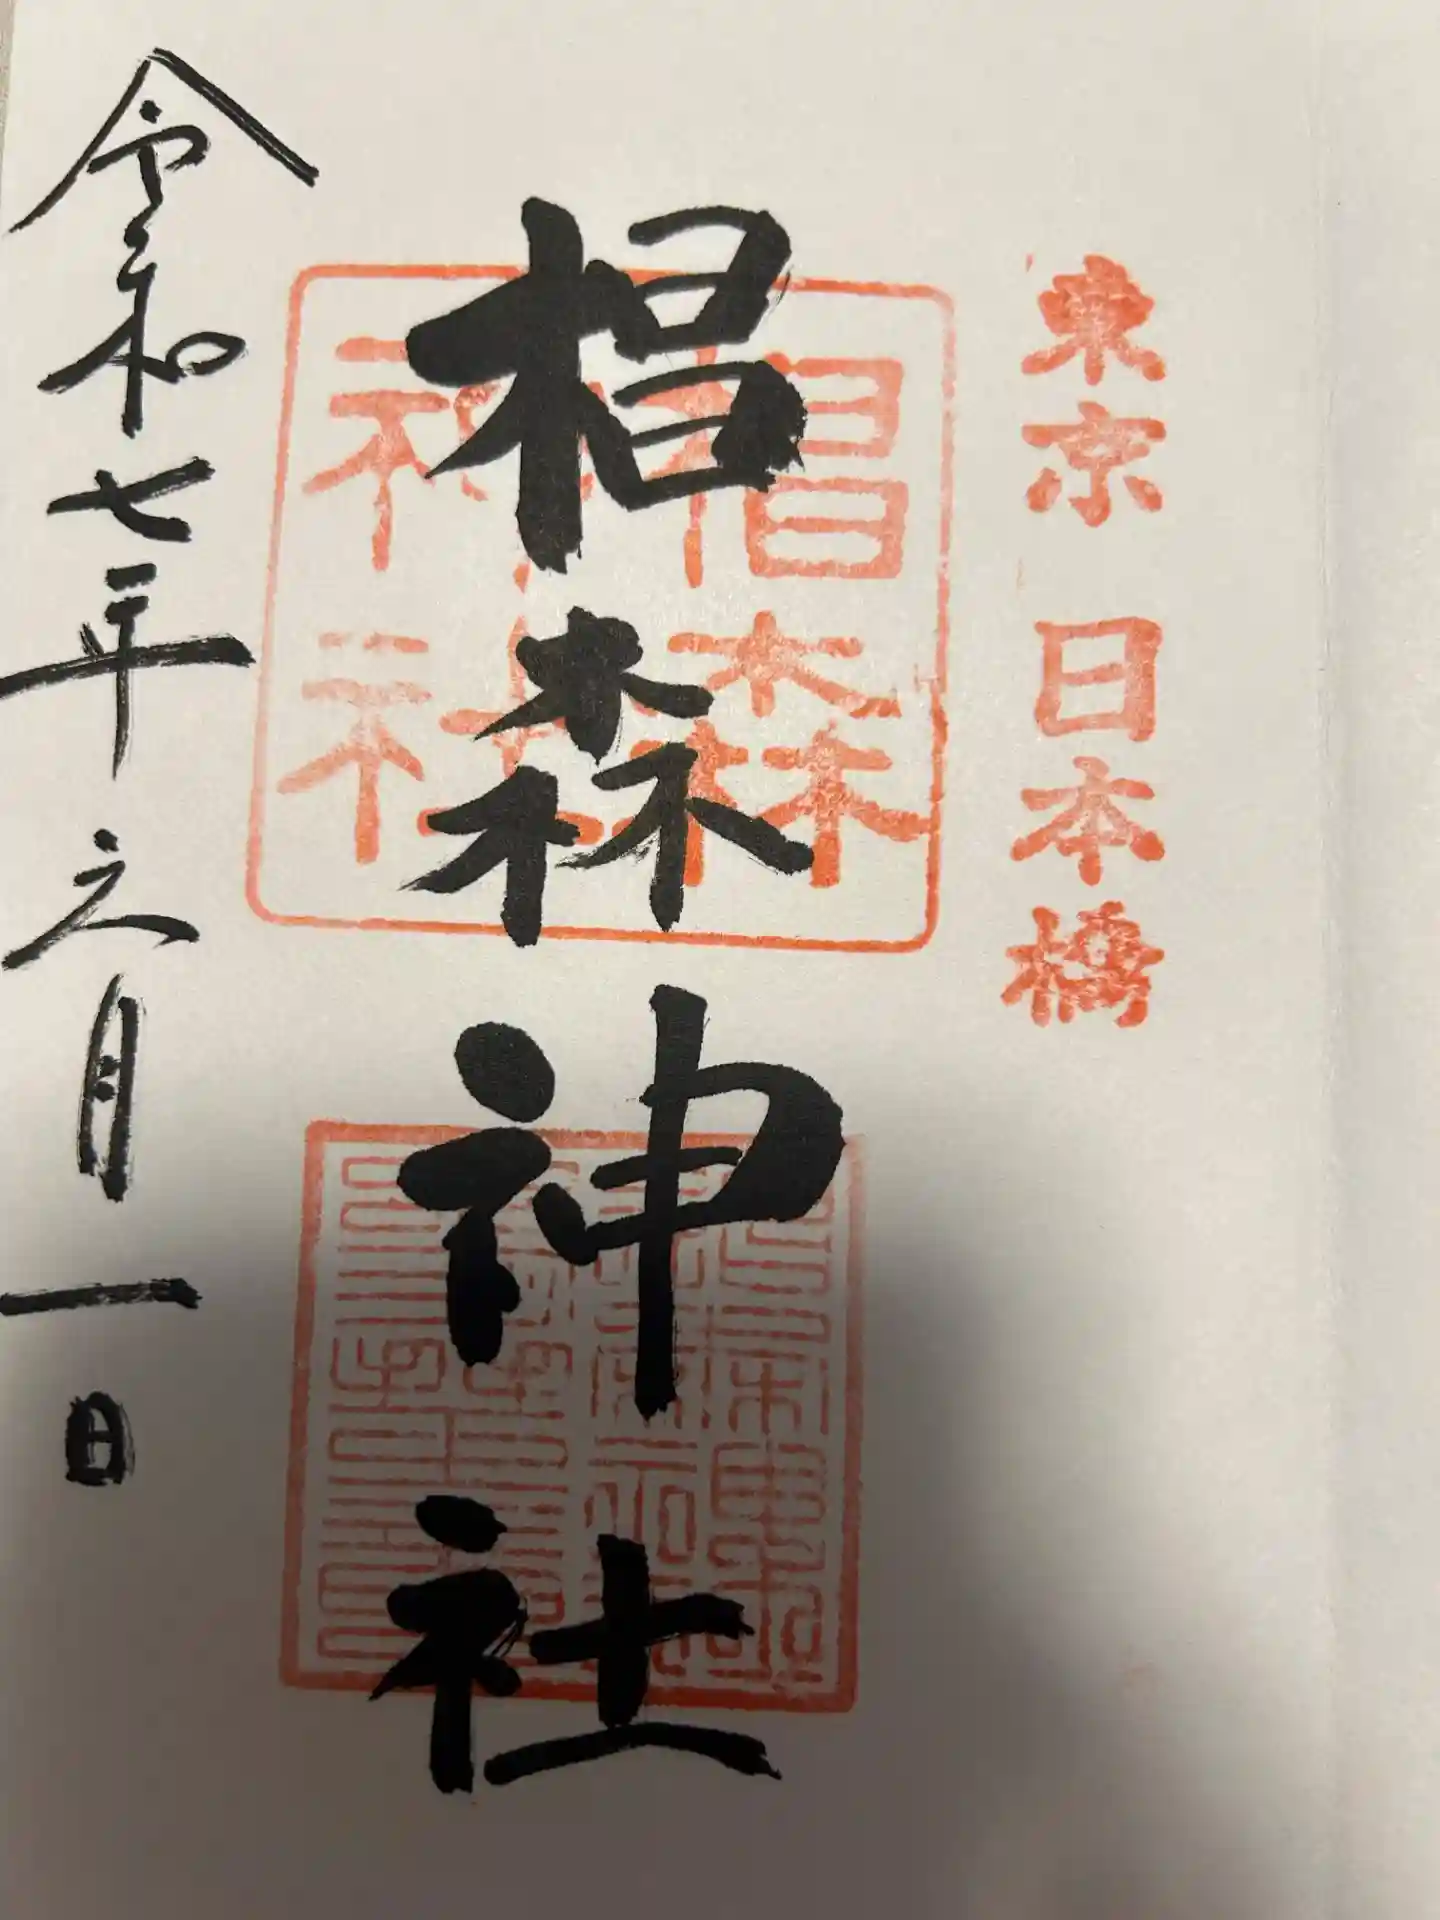 東京 日本橋
椙森神社
椙森
神社
令和七年六月一日